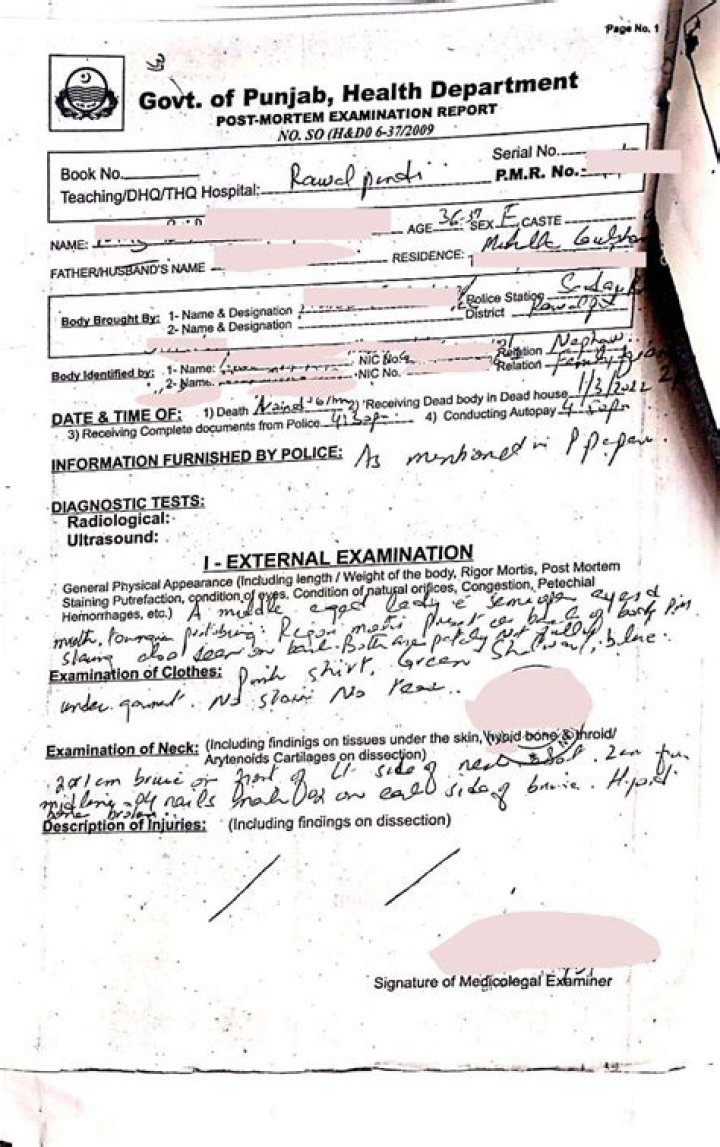 Page No. 1
Govt. of Punjab, Health Department
POST-MORTEM EXAMINATION REPORT
NO. SO (H&D0 6-37/2009
Book No.
Serial No.
Teaching/DHQ/THQ Hospital: Rawal pindi
P.M.R. No.:
NAME: AGE 36-37 SEX F CASTE
FATHER/HUSBAND'S NAME RESIDENCE:
Body Brought By: 1- Name & Designation Police Station
2- Name & Designation District
Body Identified by: 1- Name: NIC No. Relation Nephew
2- Name. NIC No. Relation
DATE & TIME OF: 1) Death 2) Receiving Dead body in Dead house 1/3/2022
3) Receiving Complete documents from Police 4:30pm 4) Conducting Autopay 4:50pm
INFORMATION FURNISHED BY POLICE: As mentioned in P.papers.
DIAGNOSTIC TESTS:
Radiological:
Ultrasound:
I - EXTERNAL EXAMINATION
General Physical Appearance (Including length / Weight of the body, Rigor Mortis, Post Mortem
Staining Putrefaction, condition of eyes, Condition of natural orifices, Congestion, Petechial
Hemorrhages, etc.) A middle aged lady semiopen eyes
mouth, present back of body
staing also seen on back. Both
Examination of Clothes: Pink shirt, Green Shalwar, blue
under garment. No stain No tear.
Examination of Neck: (Including findinigs on tissues under the skin, hybid bone & throid/
Arytenoids Cartilages on dissection)
2x1cm bruise on front of Lt. side of neck 2cm from
midline nails mark on each side of bruise. Hyoid
bone broken
Description of Injuries: (Including findings on dissection)
Signature of Medicolegal Examiner